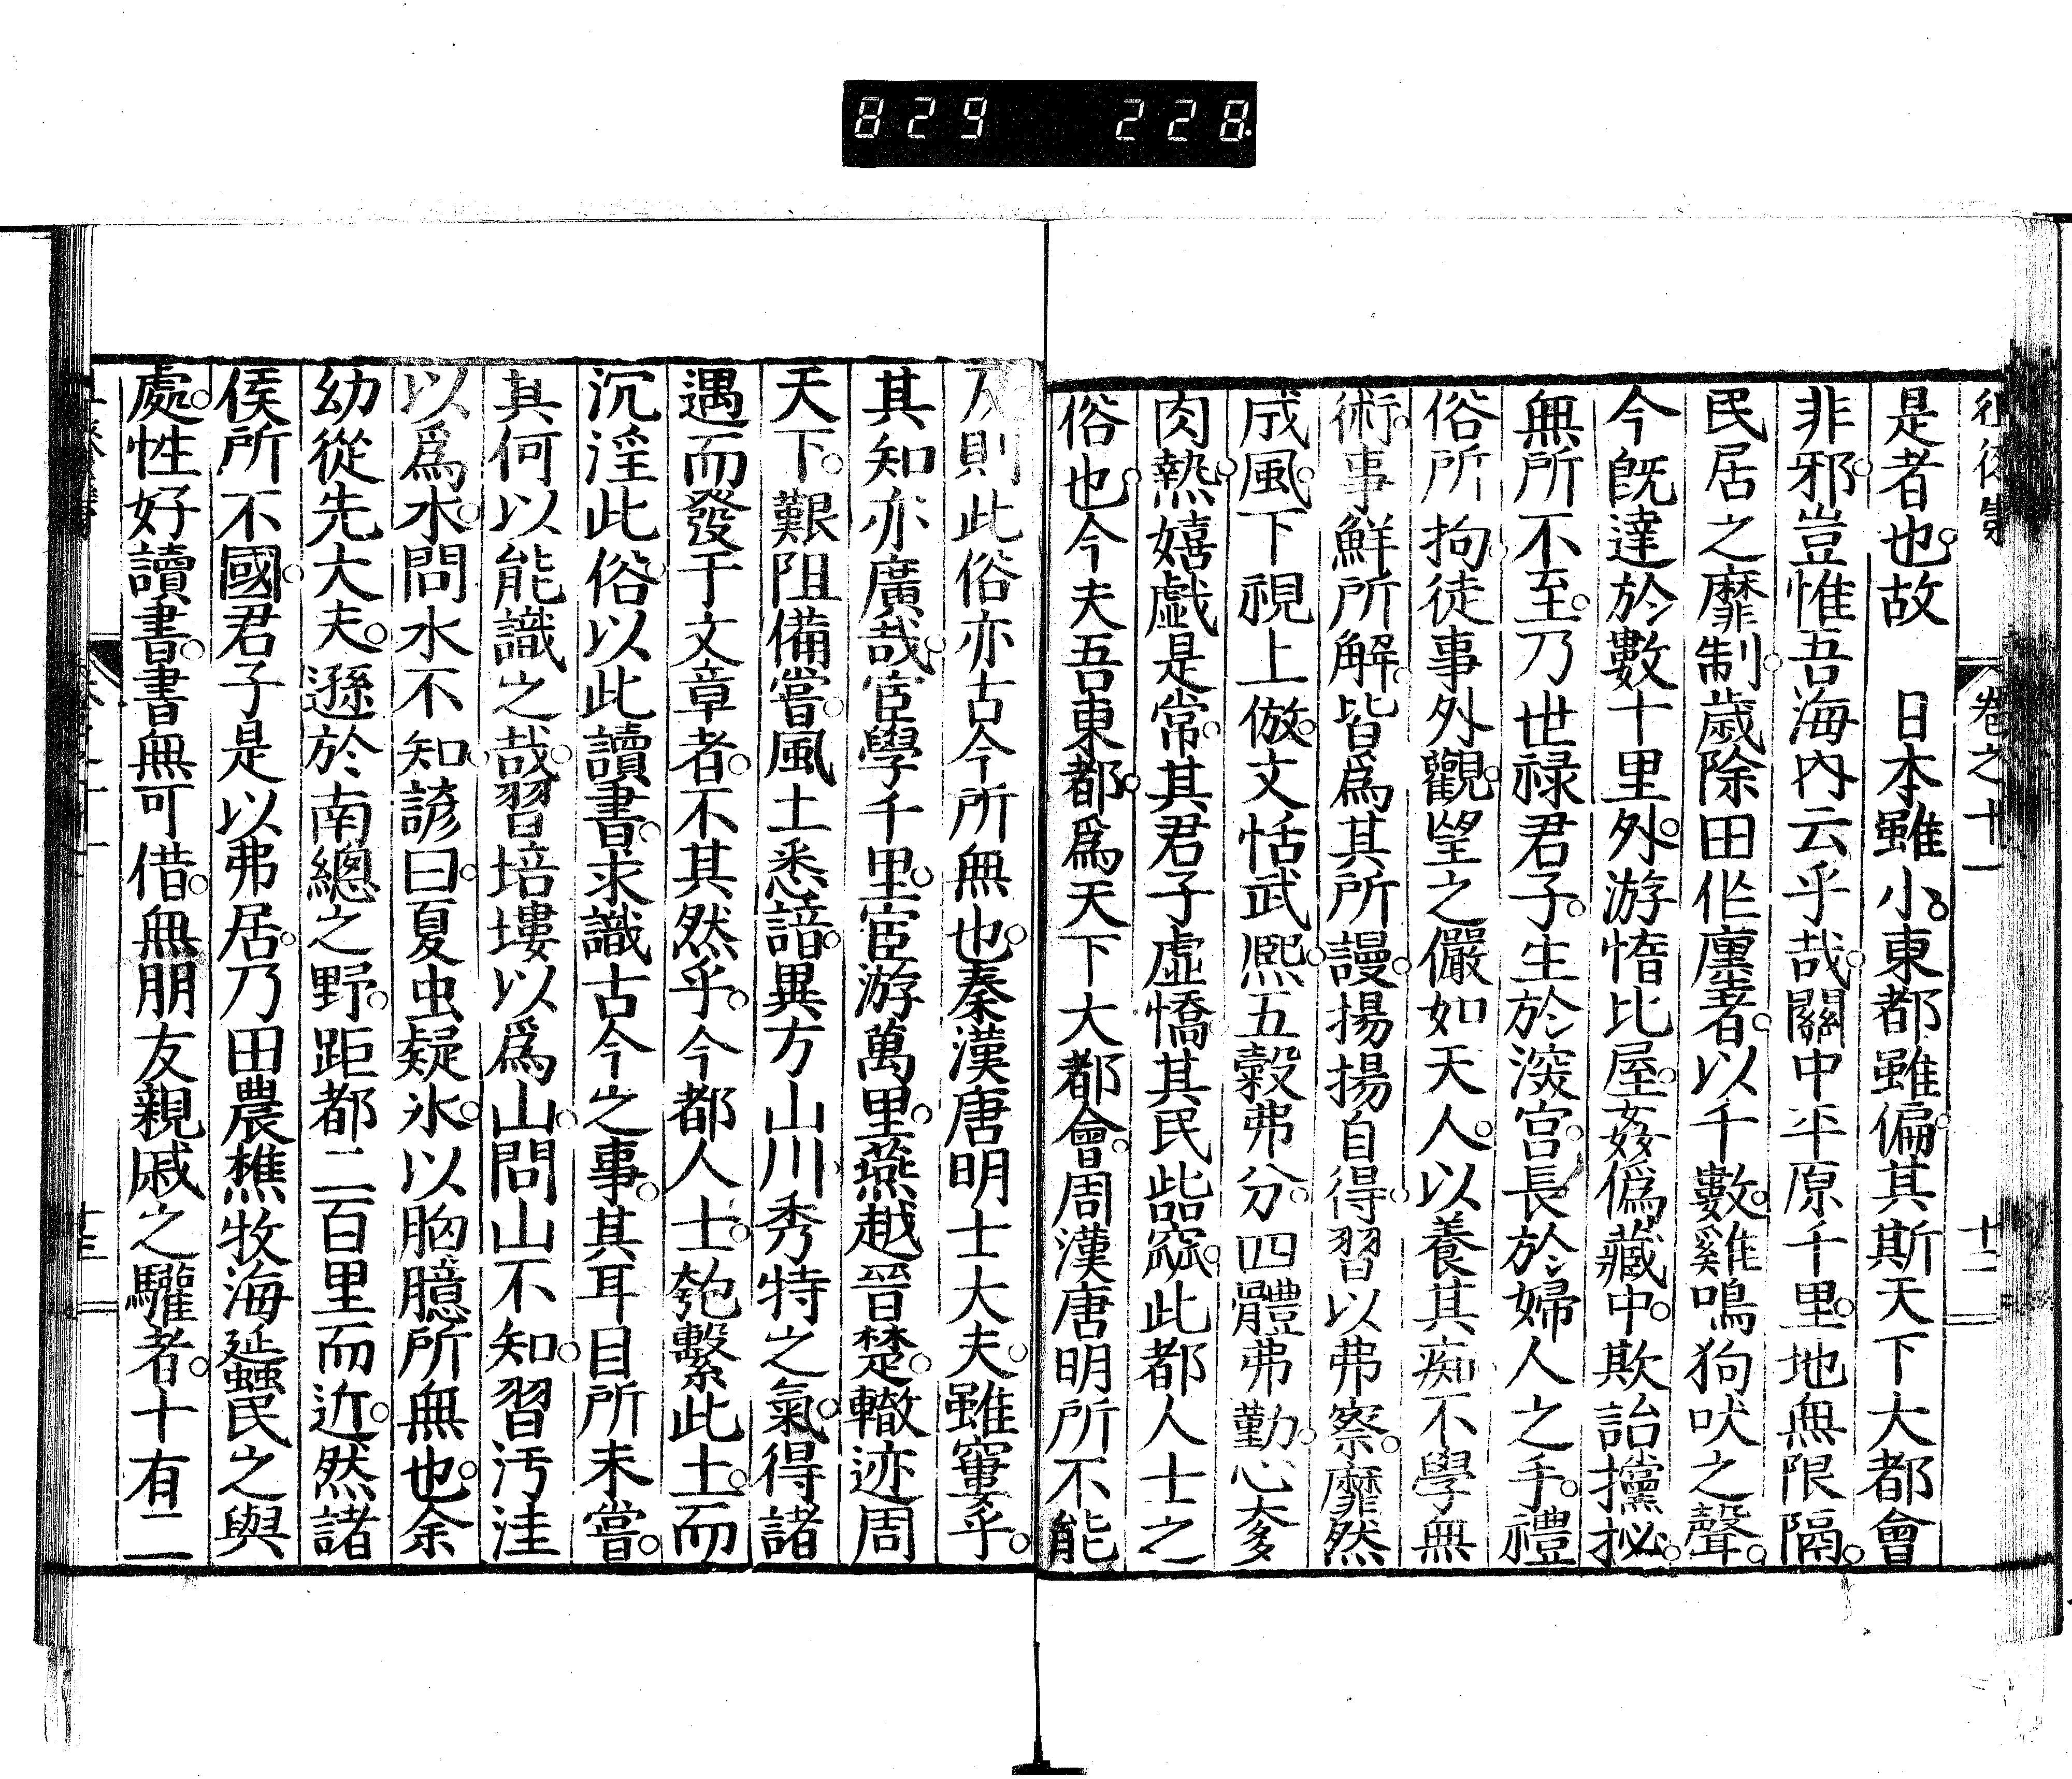 829 228
卷之十一
十二
是者也。故 日本雖小。東都雖偏。其斯天下大都會
非邪。豈惟吾海內云乎哉。關中平原千里。地無限隔。
民居之靡制。歲除田作廛者。以千數。雞鳴狗吠之聲。
今旣達於數十里外。游惰比屋。姦僞藏中。欺詒攩挻。
無所不至。乃世祿君子。生於深宮。長於婦人之手。禮
俗所拘。徒事外觀。望之儼如天人。以養其痴。不學無
術。事鮮所解。皆爲其所謾。揚揚自得。習以弗察。靡然
成風。下視上倣。文恬武熙。五穀弗分。四體弗勤。心奓
肉熱。嬉戲是常。其君子虛憍。其民呰窳。此都人士之
俗也。今夫吾東都。爲天下大都會。周漢唐明所不能
及。則此俗亦古今所無也。秦漢唐明士大夫。雖窶乎。
其知亦廣哉。宦學千里。宦游萬里。燕越晉楚。轍迹周
天下。艱阻備嘗。風土悉諳。異方山川秀特之氣。得諸
遇而發于文章者。不其然乎。今都人士。匏繫此土。而
沉淫此俗。以此讀書。求識古今之事。其耳目所未嘗。
其何以能識之哉。習培塿以爲山。問山不知。習汚洼
以爲水。問水不知。諺曰。夏虫疑氷。以胸臆所無也。余
幼從先大夫。遜於南總之野。距都二百里而近。然諸
侯所不國。君子是以弗居。乃田農樵牧海蜑民之與
處。性好讀書。書無可借。無朋友親戚之驩者。十有二
十三